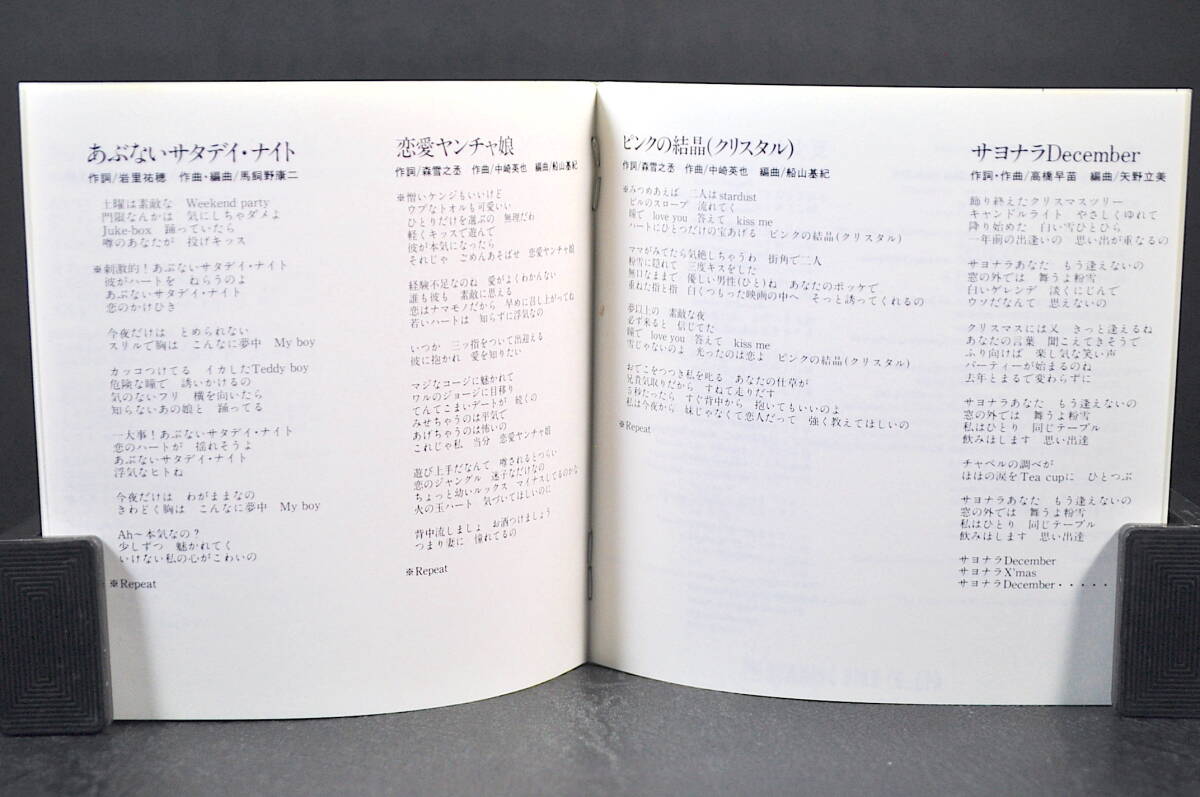 あぶないサタデイ・ナイト
作詞/岩里祐穂　作曲・編曲/馬飼野康二
土曜は素敵な　Weekend party
門限なんかは　気にしちゃダメよ
Juke-box　踊っていたら
噂のあなたが　投げキッス
※刺激的！あぶないサタデイ・ナイト
彼がハートを　ねらうのよ
あぶないサタデイ・ナイト
恋のかけひき
今夜だけは　とめられない
スリルで胸は　こんなに夢中　My boy
カッコつけてる　イカしたTeddy boy
危険な瞳で　誘いかけるの
気のないフリ　横を向いたら
知らないあの娘と　踊ってる
一大事！あぶないサタデイ・ナイト
恋のハートが　揺れそうよ
あぶないサタデイ・ナイト
浮気なヒトね
今夜だけは　わがままなの
きわどく胸は　こんなに夢中　My boy
Ah〜本気なの？
少しずつ　魅かれてく
いけない私の心がこわいの
※Repeat
恋愛ヤンチャ娘
作詞/森雪之丞　作曲/中崎英也　編曲/船山基紀
※憎いケンジもいいけど
ウブなトオルも可愛いい
ひとりだけを選ぶの　無理だわ
軽くキッスで遊んで
彼が本気になったら
それじゃ　ごめんあそばせ　恋愛ヤンチャ娘
経験不足なのね　愛がよくわかんない
誰も彼も　素敵に思える
恋はナマモノだから　早めに召し上がってね
若いハートは　知らずに浮気なの
いつか　三ッ指をついて出迎える
彼に抱かれ　愛を知りたい
マジなコージに魅かれて
ワルのジョージに目移り
てんてこまいデートが　続くの
みせちゃうのは平気で
あげちゃうのは怖いの
これじゃ私　当分　恋愛ヤンチャ娘
遊び上手だなんて　噂されるとつらい
恋のジャングル　迷子なだけなの
ちょっと幼いルックス　マイナスしてるのかな
火の玉ハート　気づいてほしいのに
背中流しましょ　お酒つけましょう
つまり妻に　憧れてるの
※Repeat
ピンクの結晶(クリスタル)
作詞/森雪之丞　作曲/中崎英也　編曲/船山基紀
※みつめあえば　二人はstardust
ビルのスロープ　流れてく
瞳で　love you　答えて　kiss me
ハートにひとつだけの宝あげる　ピンクの結晶(クリスタル)
ママがみてたら気絶しちゃうわ　街角で二人
粉雪に隠れて　三度キスをした
無口なままで　優しい男性(ひと)ね　あなたのポッケで
重ねた指と指　白くつもった映画の中へ　そっと誘ってくれるの
夢以上の　素敵な夜
必ず来ると　信じてた
瞳で　love you　答えて　kiss me
雪じゃないのよ　光ったのは恋よ　ピンクの結晶(クリスタル)
おでこをつつき私を叱る　あなたの仕草が
兄貴気取りだから　すねて走りだす
5秒たったら　すぐ背中から　抱いてもいいのよ
私は今夜から　妹じゃなくて恋人だって　強く教えてほしいの
※Repeat
サヨナラDecember
作詞・作曲/高橋早苗　編曲/矢野立美
飾り終えたクリスマスツリー
キャンドルライト　やさしくゆれて
降り始めた　白い雪ひとひら
一年前の出逢いの　思い出が重なるの
サヨナラあなた　もう逢えないの
窓の外では　舞うよ粉雪
白いゲレンデ　淡くにじんで
ウソだなんて　思えないの
クリスマスには又　きっと逢えるね
あなたの言葉　聞こえてきそうで
ふり向けば　楽し気な笑い声
パーティーが始まるのね
去年とまるで変わらずに
サヨナラあなた　もう逢えないの
窓の外では　舞うよ粉雪
私はひとり　同じテーブル
飲みほします　思い出達
チャペルの調べが
ほほの涙をTea cupに　ひとつぶ
サヨナラあなた　もう逢えないの
窓の外では　舞うよ粉雪
私はひとり　同じテーブル
飲みほします　思い出達
サヨナラDecember
サヨナラX'mas
サヨナラDecember・・・・・